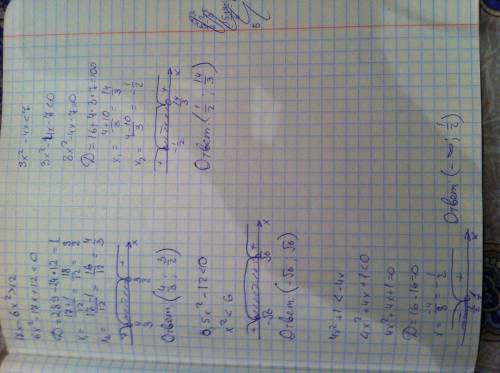 17x - 6x² > 12
6x² - 17x + 12 < 0
D = 289 - 24 * 12 = 1
x₁ = 17+1/12 = 18/12 = 3/2
x₂ = 17-1/12 = 16/12 = 4/3
4/3 3/2 x
Ответ: (4/3; 3/2)
0,5x² - 12 < 10
x² < 6
-√6 √6 x
Ответ: (-√6; √6)
4x² + 1 < -4x
4x² + 4x + 1 < 0
4x² - 4x + 1 = 0
D = 16 - 16 = 0
x = -4/8 = 1/2
x
Ответ: (-∞; 1/2)
3x² - 4x < 7
3x² - 4x - 7 < 0
3x² - 4x - 7 = 0
D = 16 + 4 · 3 · 7 = 100
x₁ = 4+10/3 = 14/3
x₂ = 4-10/3 = -1/2
-1/2 14/3 x
Ответ: (1/2; 14/3)